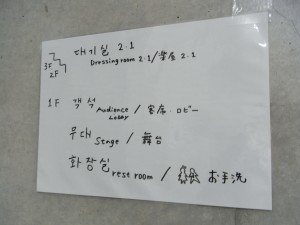 대기실 2.1
3F
2F
Dressing room 2.1/楽屋 2.1
1F 객석 Audience Lobby / 客席・ロビー
무대 Stage / 舞台
화장실 rest room / お手洗